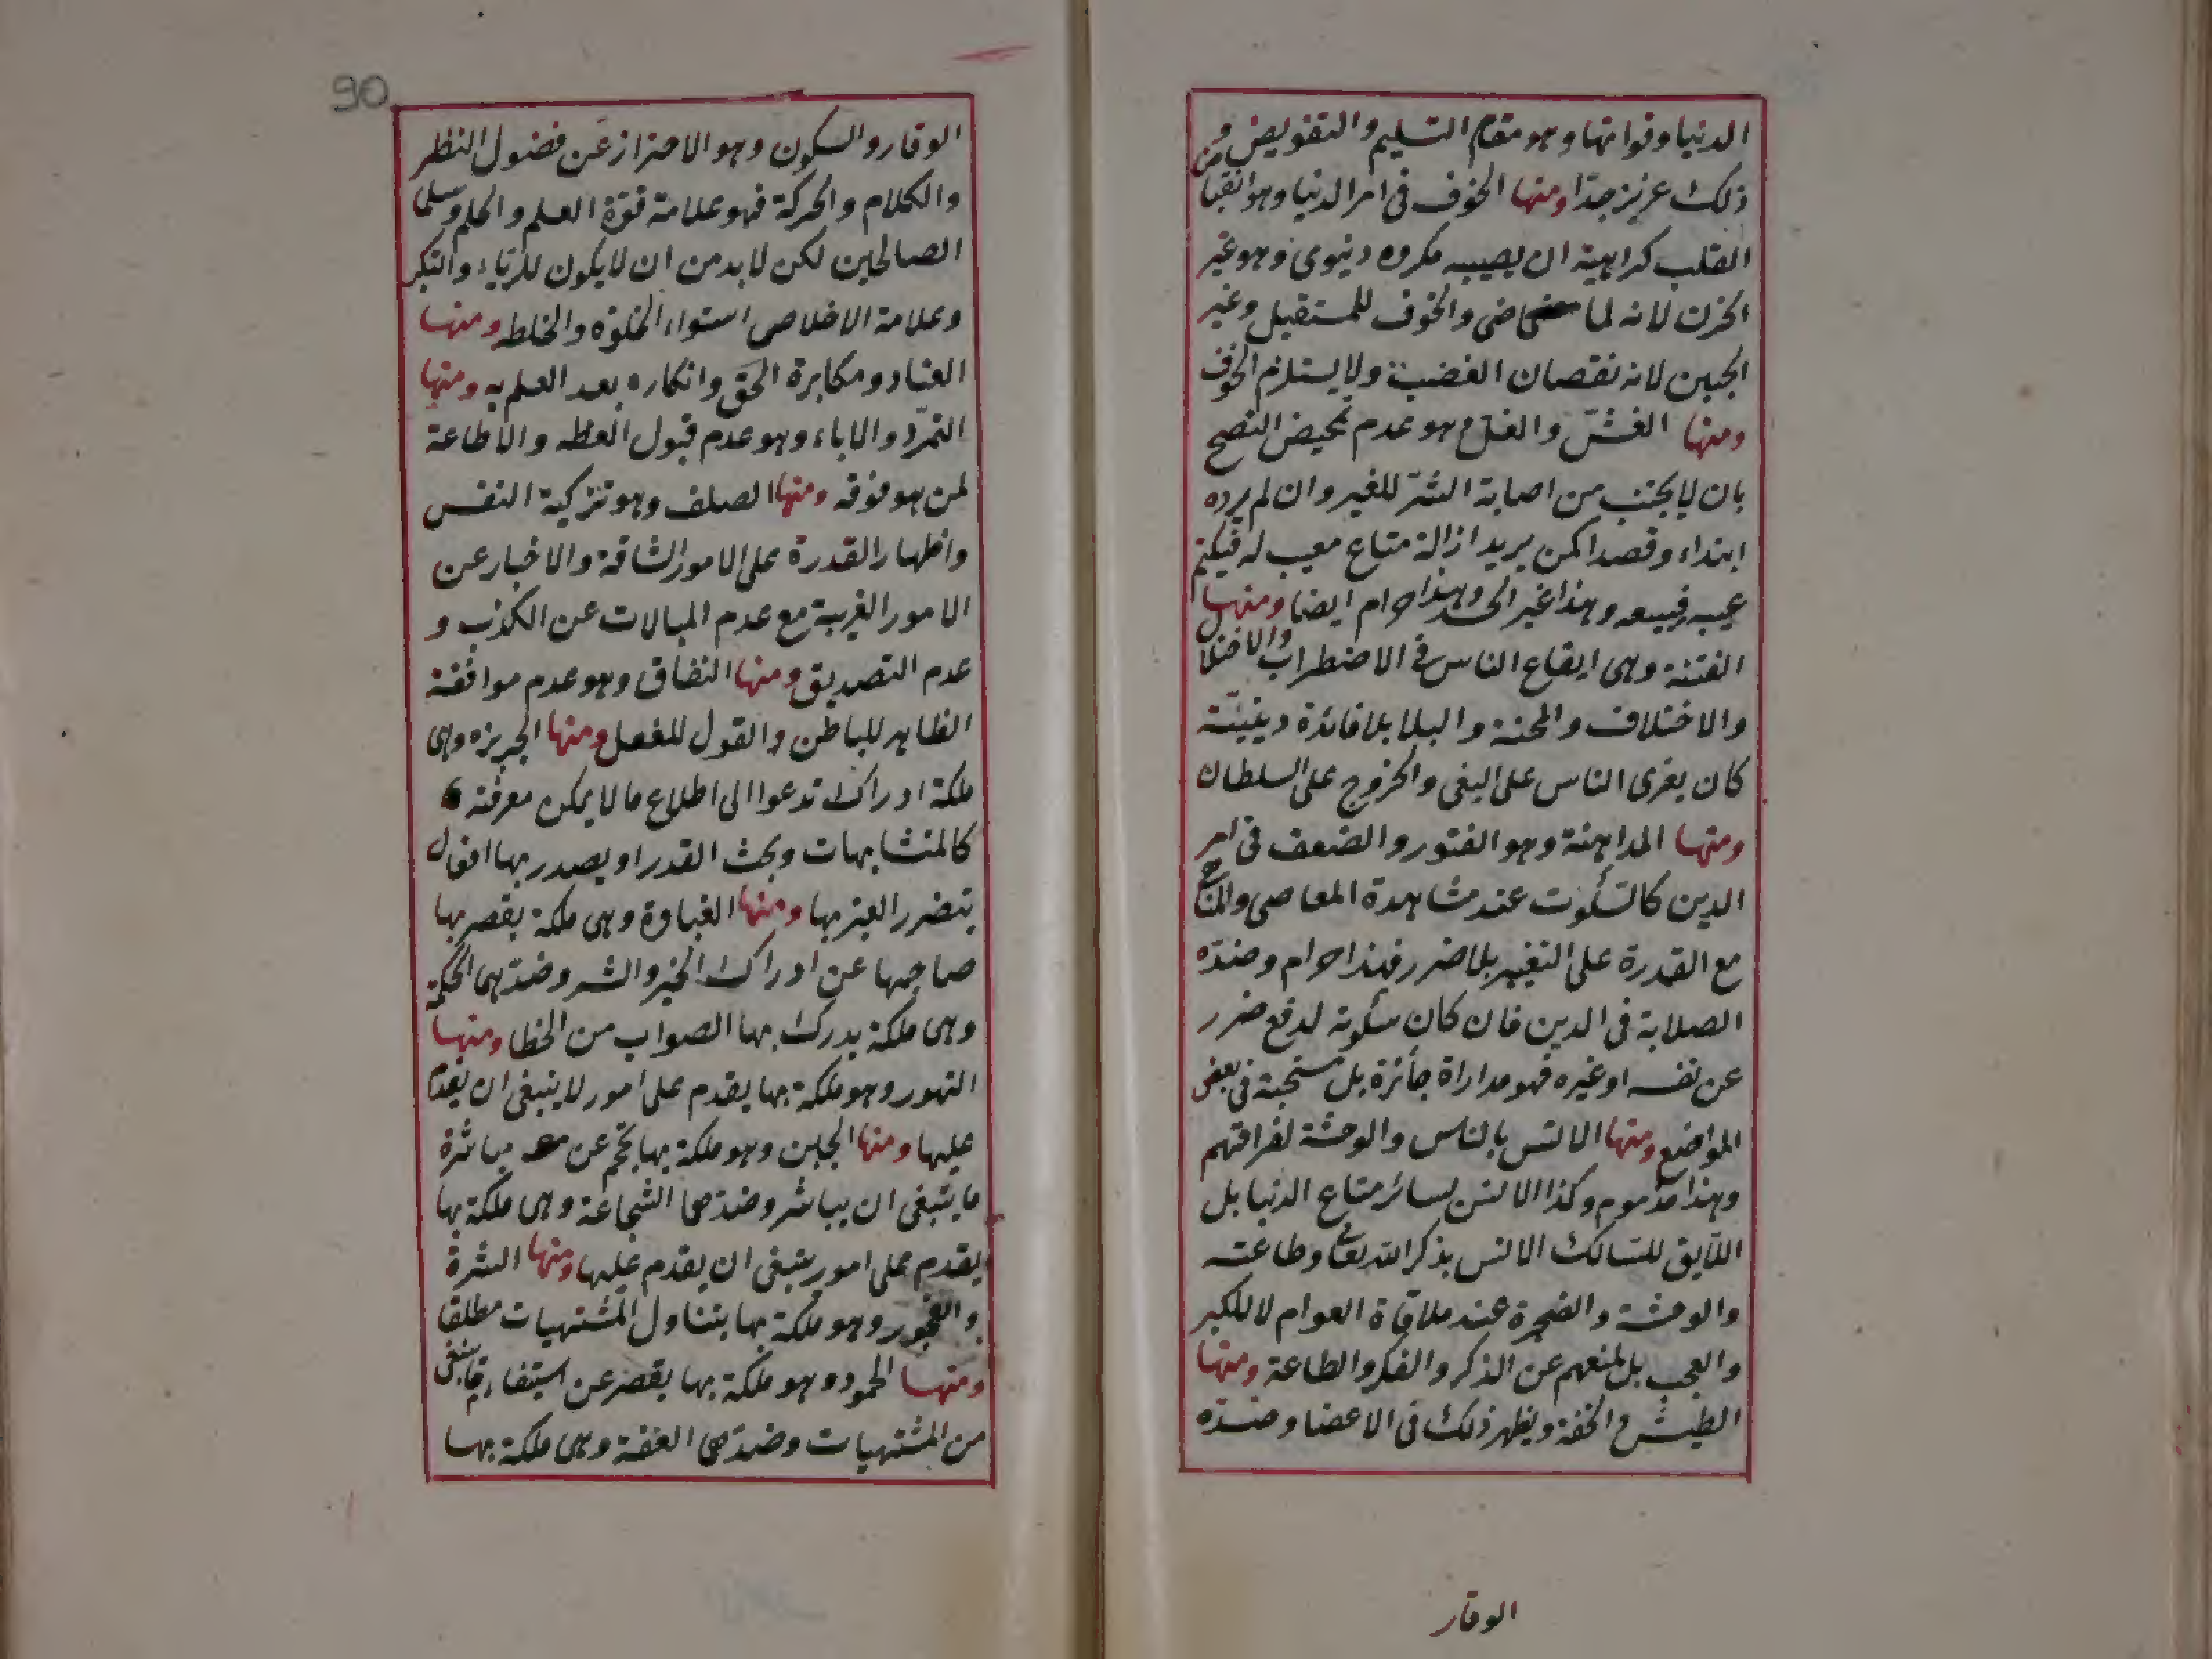 الدنيا وفواتها وهو مقام التسليم والتفويض ومن
ذلك عزيز جدا ومنها الخوف فى امر الدنيا وهو انقبا
القلب كراهية ان يصيبه مكروه دنيوى وهو غير
الحزن لانه لما مضى والخوف للمستقبل وغير
الجبن لانه نقصان الغضب ولا يستلزم الخوف
ومنها الغش والغل وهو عدم تمحيض النصح
بان لا يجتنب من اصابة الشر للغير وان لم يرده
ابتداء وقصدا كمن يريد ازالة متاع معيب له فيكتم
عيبه فيبيعه وهذا غير الحسد وهذا حرام ايضا ومنها
الفتنة وهى ايقاع الناس فى الاضطراب والاختلا
والاختلاف والمحنة والبلا بلا فائدة دينية
كان يغرى الناس على البغى والخروج على السلطان
ومنها المداهنة وهو الفتور والضعف فى امر
الدين كالسكوت عند مشاهدة المعاصى والمنا
مع القدرة على التغيير بلا ضرر فهذا حرام وضده
الصلابة فى الدين فان كان سكوته لدفع ضرر
عن نفسه او غيره فهو مداراة جائزة بل مستحبة فى بعض
المواضع ومنها الانس بالناس والوحشة لفراقهم
وهذا مذموم وكذا الانس لسائر متاع الدنيا بل
اللايق للسالك الانس بذكر الله تعالى وطاعته
والوحشة والضجرة عند ملاقاة العوام لا للكبر
والعجب بل لمنعهم عن الذكر والفكر والطاعة ومنها
الطيش والخفة ويظهر ذلك فى الاعضا وضده
الوقار
90
الوقار والسكون وهو الاحتراز عن فضول النظر
والكلام والحركة فهو علامة قوة العلم والحلم وسلى
الصالحين لكن لا بد من ان لا يكون للرياء والتكبر
وعلامة الاخلاص استواء الخلوة والخلطه ومنها
العناد ومكابرة الحق وانكاره بعد العلم به ومنها
التمرد والاباء وهو عدم قبول العظه والاطاعة
لمن هو فوقه ومنها الصلف وهو تزكية النفس
واظهار القدرة على الامور الشاقة والاخبار عن
الامور الغريبة مع عدم المبالات عن الكذب و
عدم التصديق ومنها النفاق وهو عدم موافقة
الظاهر للباطن والقول للفعل ومنها الجربزه وهى
ملكة ادراك تدعوا الى اطلاع ما لا يمكن معرفته
كالمتشابهات وبحث القدر او يصدر بها افعال
يتضرر الغير بها ومنها الغباوة وهى ملكة يقصر بها
صاحبها عن ادراك الخير والشر وضده هى الحكمة
وهى ملكة يدرك بها الصواب من الخطا ومنها
التهور وهو ملكة بها يقدم على امور لا ينبغى ان يقدم
عليها ومنها الجبن وهو ملكة بها يحجم عن مباشرة
ما ينبغى ان يباشر وضده هى الشجاعة وهى ملكة بها
يقدم على امور ينبغى ان يقدم عليها ومنها الشرة
والفجور وهو ملكة بها يتناول المشتهيات مطلقا
ومنها الخمود وهو ملكة بها يقصر عن استيفاء ما ينبغى
من المشتهيات وضده هى العفة وهى ملكة بها